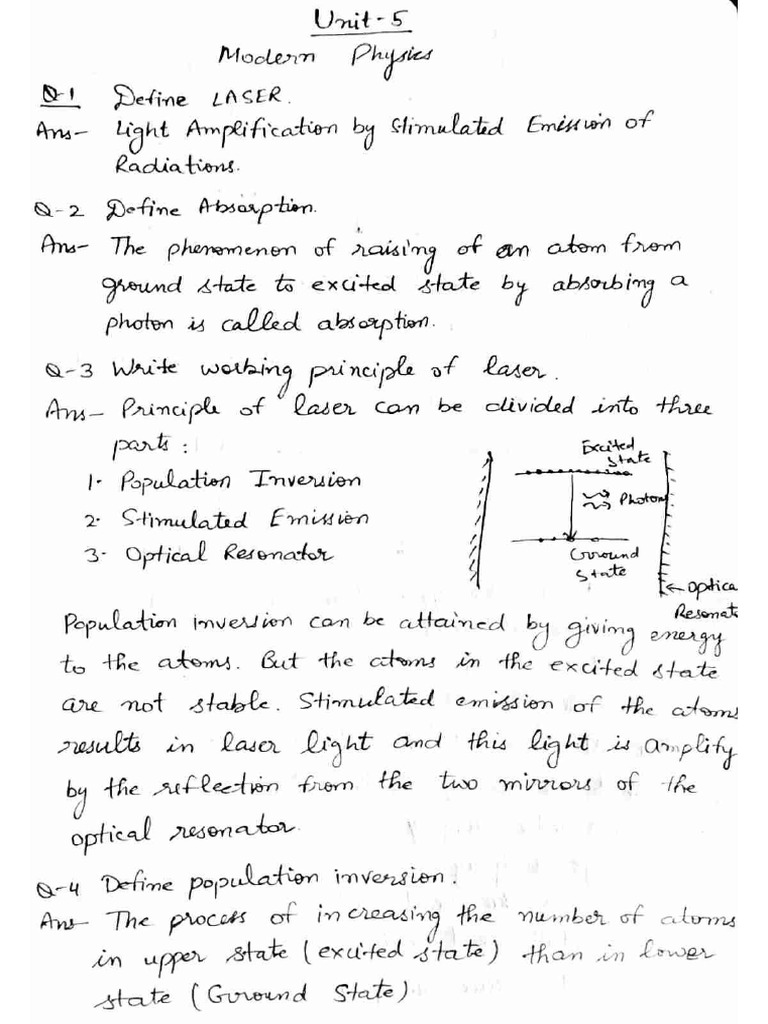 Unit-5
Modern Physics
Q-1 Define LASER.
Ans- Light Amplification by Stimulated Emission of
Radiations.
Q-2 Define Absorption.
Ans- The phenomenon of raising of an atom from
ground state to excited state by absorbing a
photon is called absorption.
Q-3 Write working principle of laser.
Ans- Principle of laser can be divided into three
parts :
1. Population Inversion
2. Stimulated Emission
3. Optical Resonator
Excited
State
Photon
Ground
State
← Optica
Resonat
Population inversion can be attained by giving energy
to the atoms. But the atoms in the excited state
are not stable. Stimulated emission of the atoms
results in laser light and this light is amplify
by the reflection from the two mirrors of the
optical resonator.
Q-4 Define population inversion.
Ans- The process of increasing the number of atoms
in upper state (excited state) than in lower
state (Ground State)